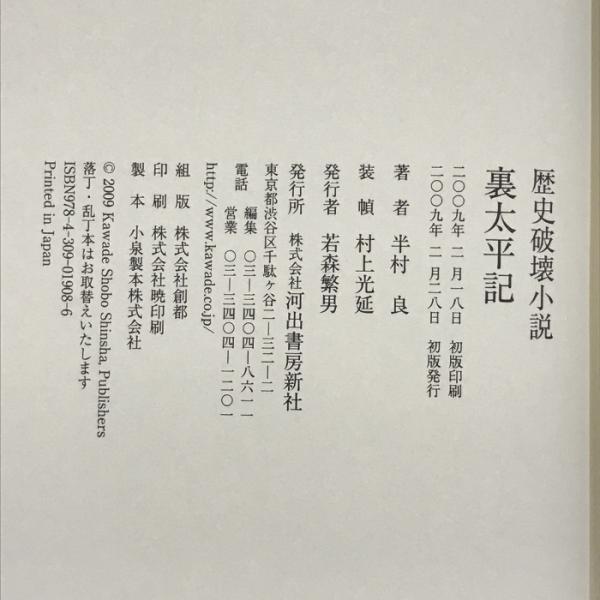 歴史破壊小説
裏太平記
二〇〇九年 二月一八日 初版印刷
二〇〇九年 二月二八日 初版発行
著者 半村 良
装幀 村上光延
発行者 若森繁男
発行所 株式会社河出書房新社
東京都渋谷区千駄ヶ谷二―三二―二
電話 編集 〇三―三四〇四―八六一一
営業 〇三―三四〇四―一二〇一
http://www.kawade.co.jp/
組版 株式会社創都
印刷 株式会社暁印刷
製本 小泉製本株式会社
© 2009 Kawade Shobo Shinsha, Publishers
落丁・乱丁本はお取替えいたします
ISBN978-4-309-01908-6
Printed in Japan